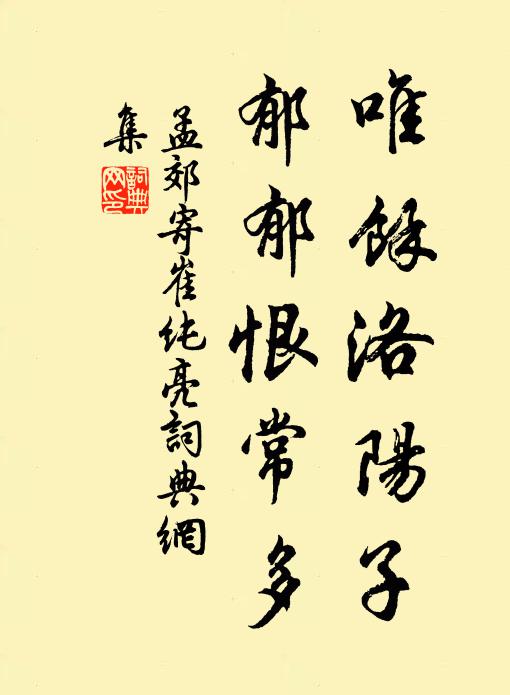 唯餘洛陽子
郁郁恨常多
孟郊寄崔纯亮詞典網
集
詞典网印